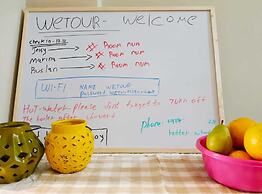 WETOUR- Welcome
check in
Jeny # Room num
Marina # Room num
Ruslan # Room num
WI-FI NAME WETOUR
password
HOT-water please dont forget to Turn off
The boiler after shower!
phone:
better